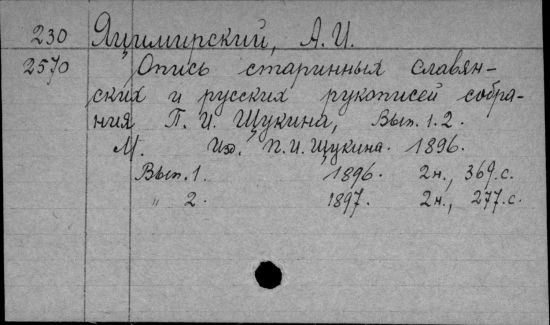 230 Яцимирский, А. И.
2570 Опись старинных славян-
ских и русских рукописей собра-
ния П. И. Щукина, Вып. 1. 2.
М. Изд. П. И. Щукина. 1896.
Вып. 1. 1896. 2н., 369. с.
" 2. 1897. 2н., 277. с.